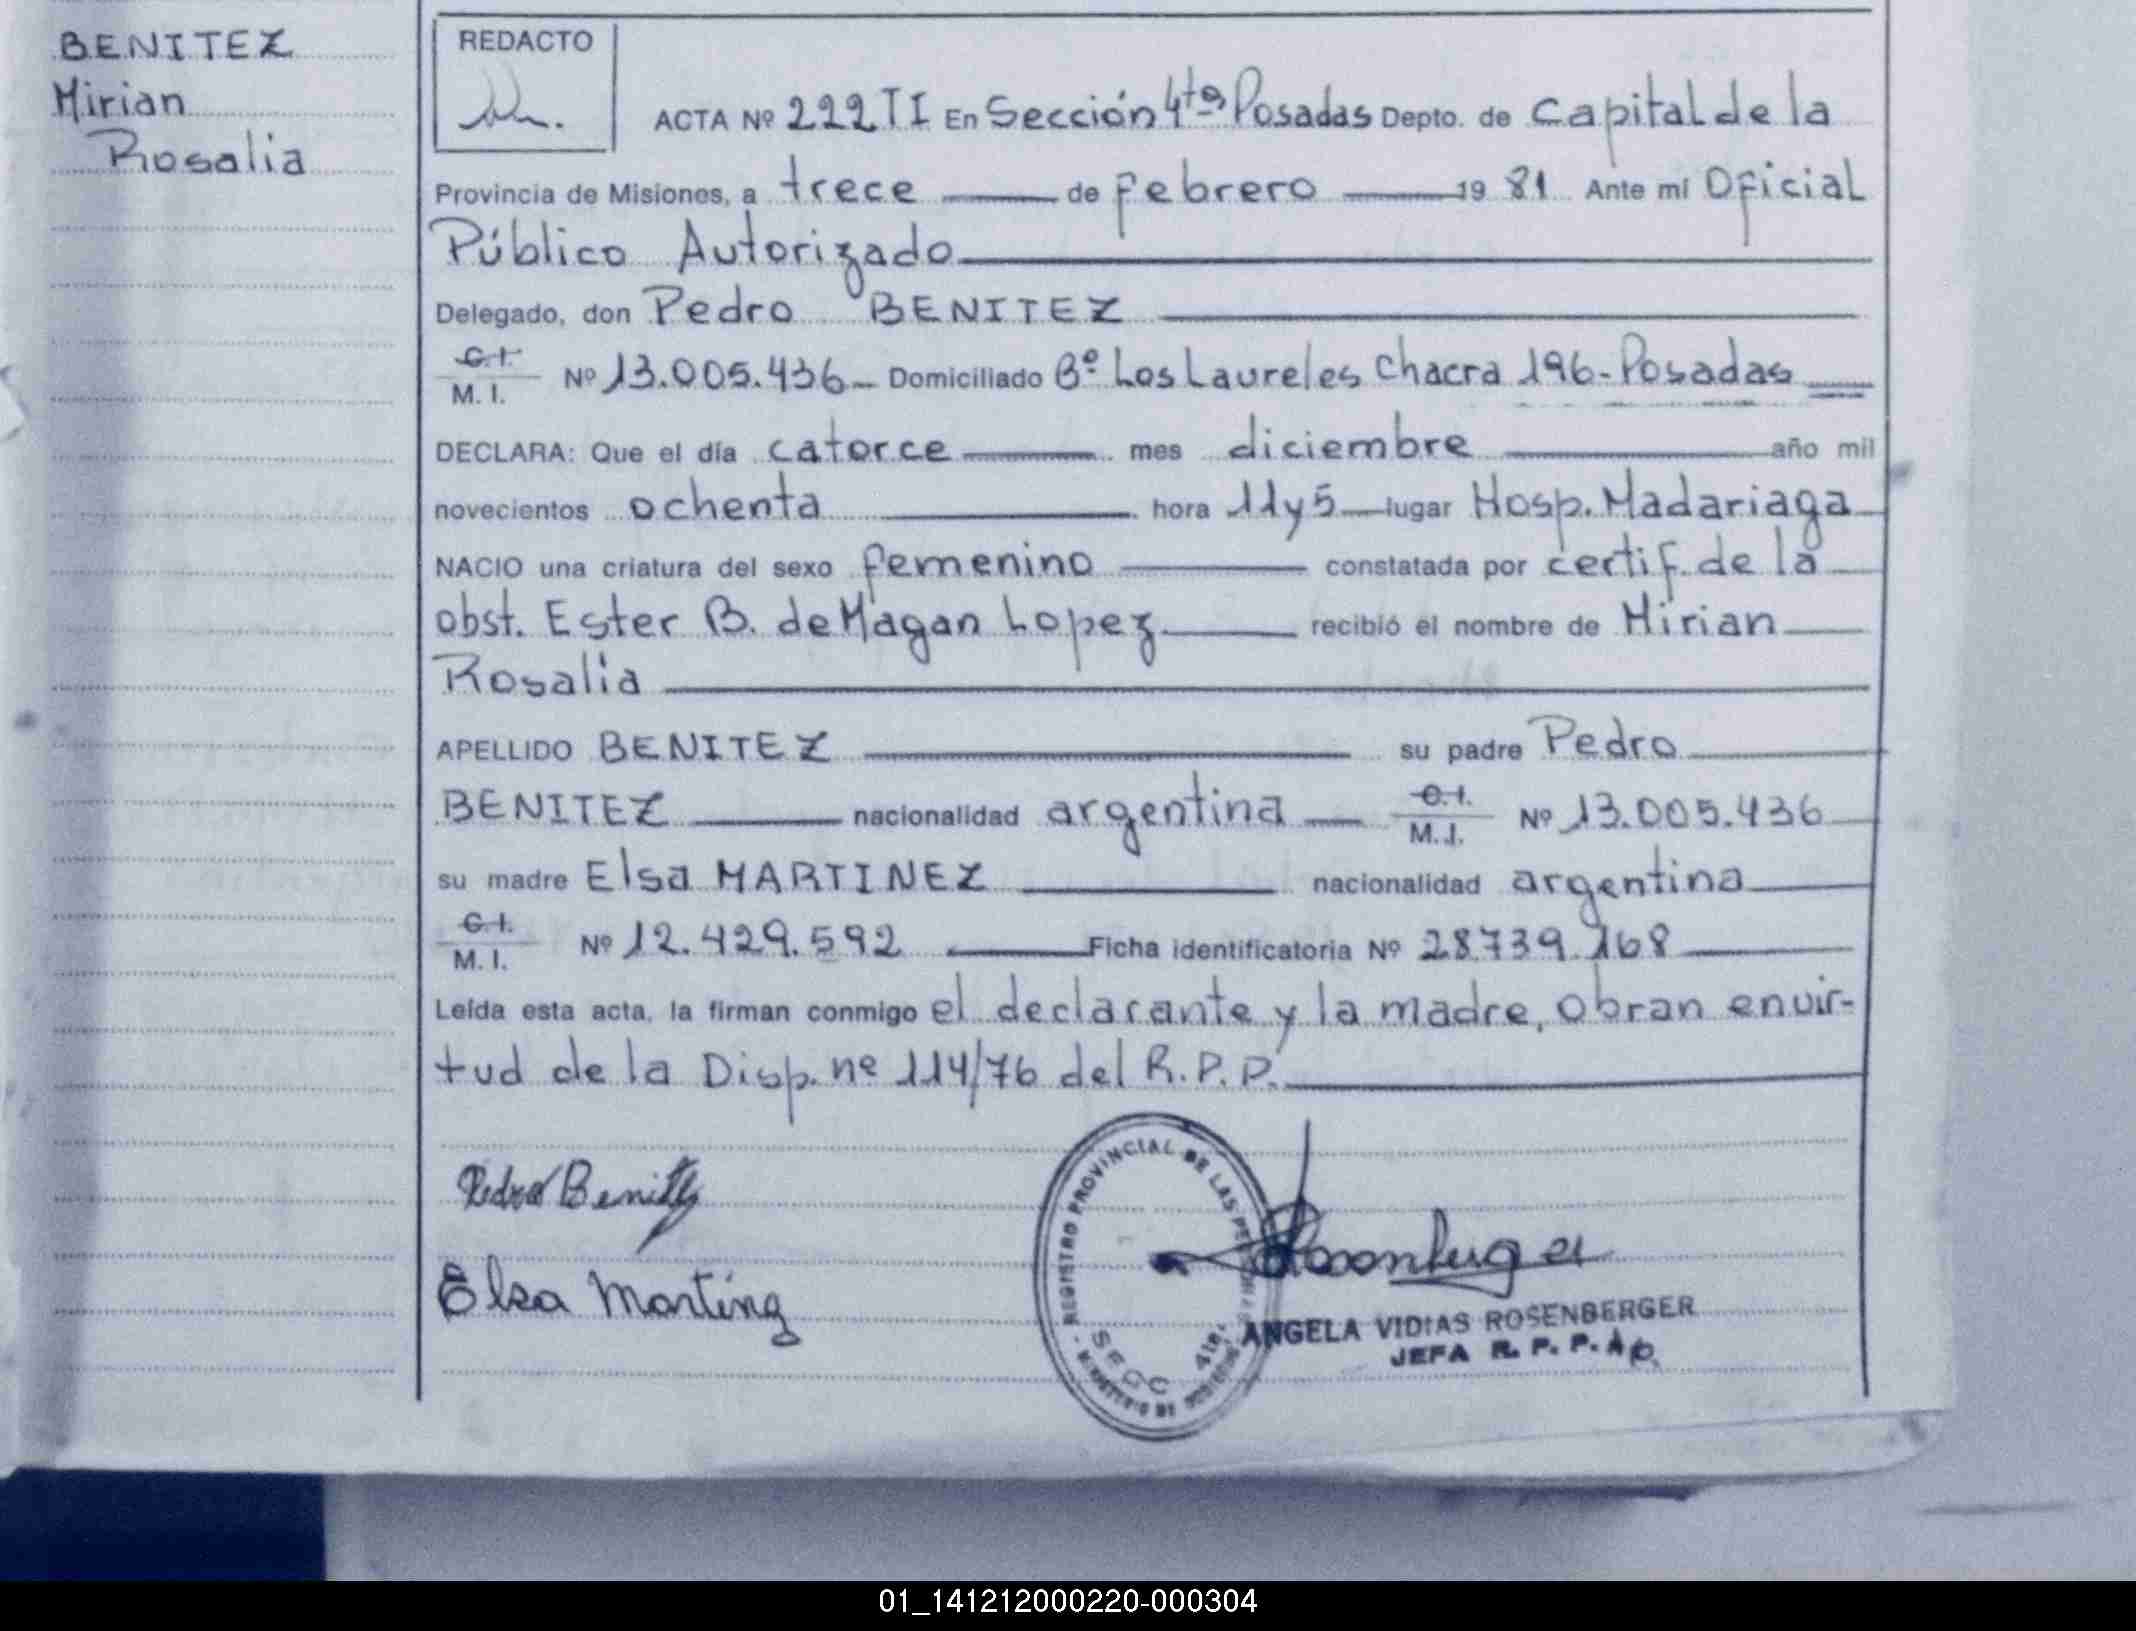 BENITEZ
Mirian
Rosalia
REDACTO
ACTA Nº 222TI En Sección 4ta Posadas Depto. de Capital de la
Provincia de Misiones, a trece de febrero 19 81 Ante mí Oficial
Público Autorizado
Delegado, don Pedro BENITEZ
C.I.
M. I. Nº 13.005.436 Domiciliado Bº Los Laureles Chacra 196-Posadas
DECLARA: Que el día catorce mes diciembre año mil
novecientos ochenta hora 11y5 lugar Hosp. Madariaga
NACIO una criatura del sexo femenino constatada por certif. de la
obst. Ester B. de Magan Lopez recibió el nombre de Mirian
Rosalia
APELLIDO BENITEZ su padre Pedro
BENITEZ nacionalidad argentina C.I. M.I. Nº 13.005.436
su madre Elsa MARTINEZ nacionalidad argentina
C.I.
M. I. Nº 12.429.592 Ficha identificatoria Nº 28.739.168
Leída esta acta, la firman conmigo el declarante y la madre, obran en vir-
tud de la Disp. nº 114/76 del R.P.P.
Pedro Benitez
Elsa Martinez
REGISTRO PROVINCIAL DE LAS
SECC 4ta.
MINISTERIO DE
Rosenberger
ANGELA VIDIAS ROSENBERGER
JEFA R. P. P.
01_141212000220-000304